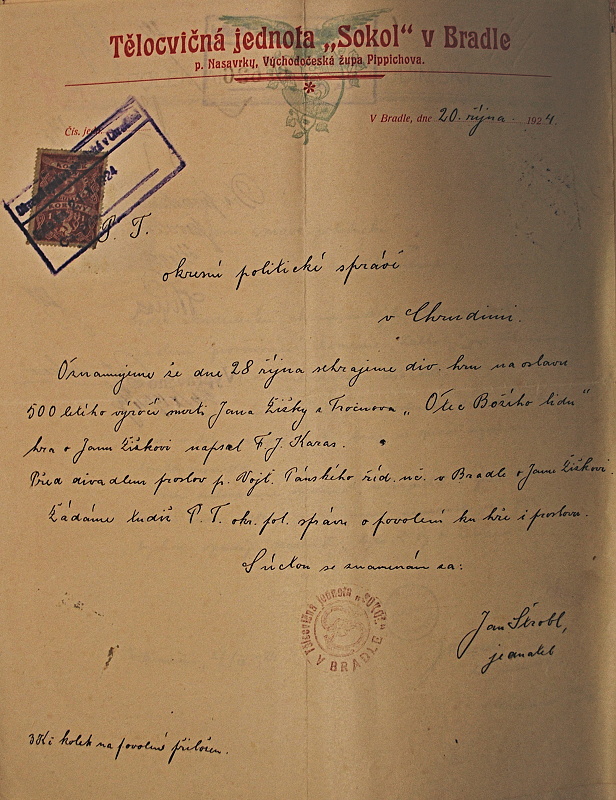 Tělocvičná jednota „Sokol“ v Bradle
p. Nasavrky, Východočeská župa Pippichova.
V Bradle, dne 20. října 1924.
Čís. jedn.
P. T.
okresní politické správě
v Chrudimi.
Oznamujeme že dne 28 října sehrajeme div. hru na oslavu
500 letého výročí smrti Jana Žižky z Trocnova „Otec Božího lidu“
hra o Janu Žižkovi napsal F. J. Karas.
Před divadlem proslov p. Vojt. Pánského říd. uč. v Bradle o Janu Žižkovi.
Žádáme tudíž P. T. okr. pol. správu o povolení ku hře i proslovu.
S úctou se znamenám za:
Tělocvičná jednota „SOKOL“
V BRADLE
Jan Štrobl,
jednatel
3 Kč kolek na povolení přiložen.